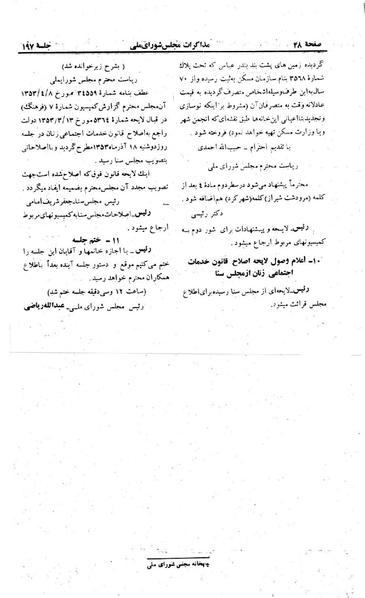 صفحهٔ ۲۸
مذاکرات مجلس شورای ملی
جلسهٔ ۱۹۷
گردیده زمین های پشت بند بندر عباس که تحت پلاک
شمارهٔ ۳۵۶۸ بنام سازمان مسکن به ثبت رسیده و از ۷۰
سال به این طرف وسیله اشخاص تصرف گردیده به قیمت
عادلانه وقت به متصرفان آن (مشروط بر اینکه نوسازی
و تجدید بنا اعیانی این خانه‌ها طبق نقشه‌ای که انجمن شهر
و یا وزارت مسکن تهیه خواهد نمود) فروخته شود.
با تقدیم احترام - حبیب‌الله احمدی
ریاست محترم مجلس شورای ملی
محترماً پیشنهاد می‌شود در سطر دوم مادهٔ ۴ بعد از
کلمه (مرودشت شیراز) کلمه (شهر کرد) هم اضافه شود.
دکتر رئیسی
رئیس- لایحه و پیشنهادات برای شور دوم به
کمیسیونهای مربوط ارجاع میشود.
۱۰- اعلام وصول لایحه اصلاح قانون خدمات
اجتماعی زنان از مجلس سنا
رئیس- لایحه‌ای از مجلس سنا رسیده برای اطلاع
مجلس قرائت میشود.
(بشرح زیر خوانده شد)
ریاست محترم مجلس شورایملی
عطف بنامه شمارهٔ ۳۴۵۵۹ مورخ ۱۳۵۳/۴/۸
آن مجلس محترم گزارش کمیسیون شمارهٔ ۷ (فرهنگ)
در قبال لایحه شمارهٔ ۵۳۶۴ مورخ ۱۳۵۳/۳/۱۳ دولت
راجع به اصلاح قانون خدمات اجتماعی زنان در جلسه
روز دوشنبه ۱۸ آذرماه ۱۳۵۳ مطرح گردید و با اصلاحاتی
بتصویب مجلس سنا رسید.
اینک لایحه قانونی فوق که اصلاح شده است جهت
تصویب مجدد آن مجلس محترم بضمیمه ایفاد میگردد.
رئیس مجلس سنا- جعفر شریف‌امامی
رئیس- اصلاحات مجلس سنا به کمیسیونهای مربوط
ارجاع میشود.
۱۱- ختم جلسه
رئیس- با اجازه خانمها و آقایان این جلسه را
ختم می‌کنیم موقع و دستور جلسه آینده بعداً باطلاع
همکاران محترم خواهد رسید.
(ساعت ۱۲ و سی دقیقه جلسه ختم شد)
رئیس مجلس شورای ملی- عبدالله ریاضی
چاپخانه مجلس شورای ملی